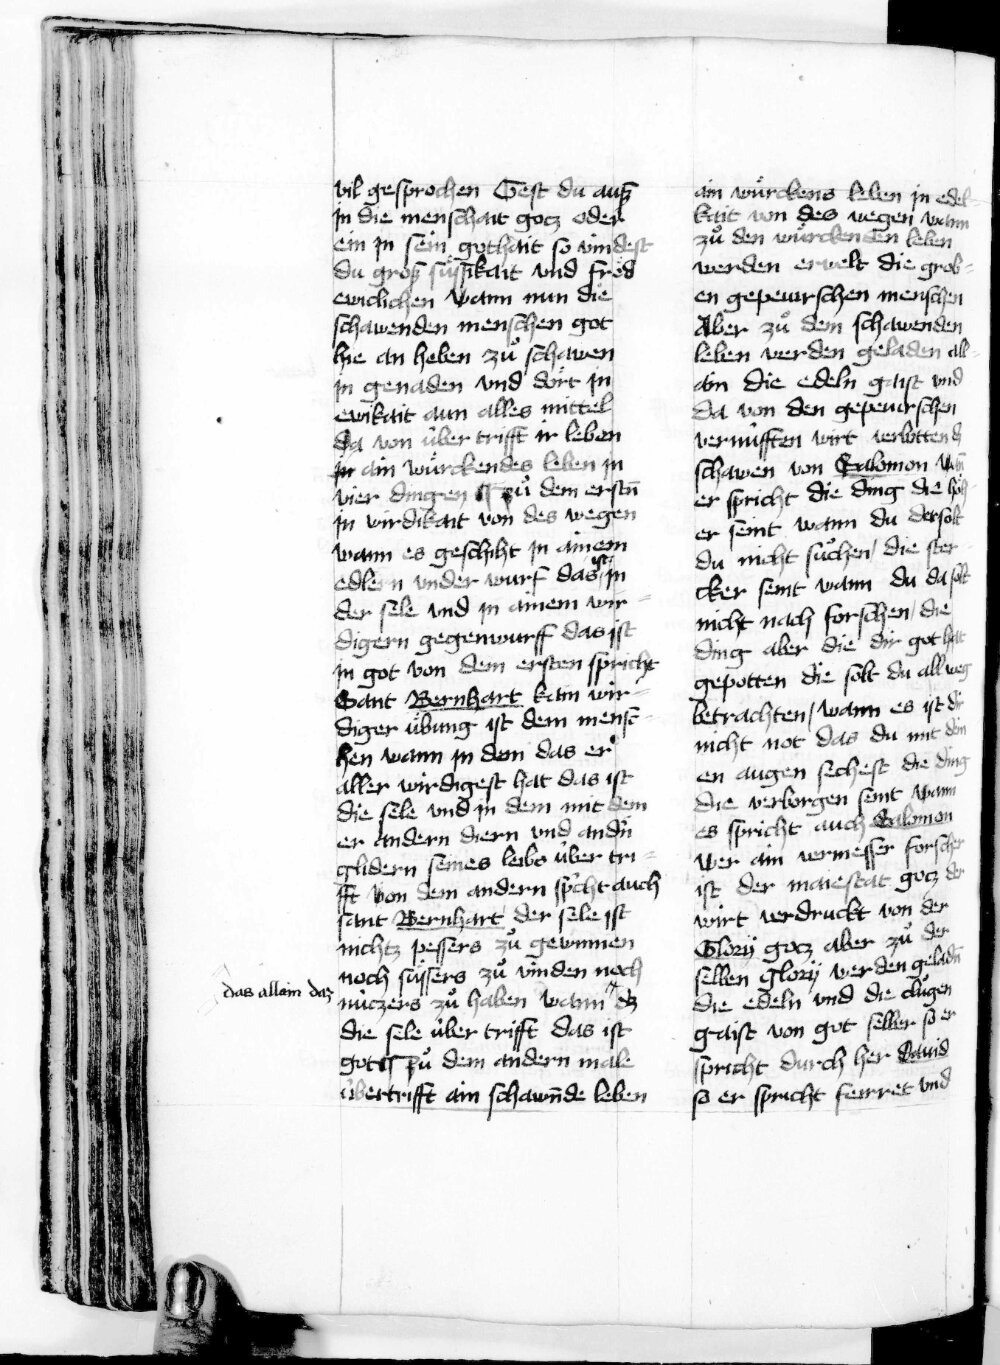 vil gesprochen Gest du auß
in die menschait gocz oder
ein in sein gothait so vindest
du groß süssikait vnd fröd
ewiclichen wann nun die
schawenden menschen got
hie an heben zů schawen
in genaden vnd dört in
ewikait aun alles mittel
da von über trifft ir leben
ain würckendes leben in
vier dingen ¶ zů dem erstn̄
in wirdikait von des wegen
wann es geschiht in ainem
edlern vnder wurf das ist in
der sele vnd in ainem wir-
digern gegenwurff das ist
in got von dem ersten spricht
Sant Bernhart kain wir-
diger übung ist dem mensc-
hen wann in dem das er
aller wirdigest hat das ist
die sele vnd in dem mit dem
er andern diern vnd andn̄
glidern seines leibs über tri-
fft von dem andern spͥcht auch
sant Bernhart der sele ist
nichtz pessers zů gewinnen
noch süssers zů vinden noch
das allain daz
nüczers zů haben wann dz
die sele über trifft das ist
got ¶ zů dem andern male
übertrifft ain schawn̄de leben
ain würckens leben in edel-
kait von des wegen wann
zů den würckenden leben
werden erwelt die grob-
en gepewrschen menschen
Aber zů dem schawenden
leben werden geladen all-
ain die edeln gaist vnd
da von den gepewrschen
vernüfften wirt verbotten dz
schawen von Salomon wan̄
er spricht die ding die höh-
er seint wann du der solt
du nicht sůchen / die ster-
cker seint wann du da solt
nicht nach forschen / die
ding aber die dir got hat
gepotten die solt du all weg
betrachten / wann es ist dir
nicht not das du mit dein
en augen sechest die ding
die verborgen seint wann
es spricht auch Salomon
wer ain vermesser forscher
ist der maiestat gocz der
wirt verdruckt von der
Glory gocz aber zů der
selben glory werden geladn̄
die edeln vnd die clůgen
gaist von got selber so er
spricht durch her Dauid
so er spricht ferret vnd